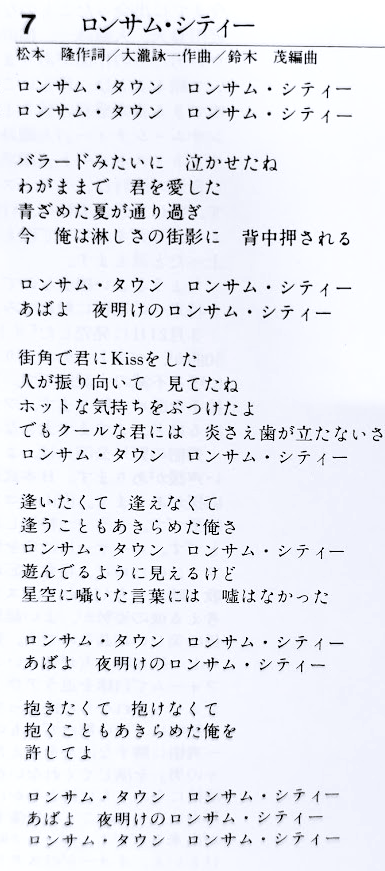 7　ロンサム・シティー
松本　隆作詞／大瀧詠一作曲／鈴木　茂編曲
ロンサム・タウン　ロンサム・シティー
ロンサム・タウン　ロンサム・シティー
バラードみたいに　泣かせたね
わがままで　君を愛した
青ざめた夏が通り過ぎ
今　俺は淋しさの街影に　背中押される
ロンサム・タウン　ロンサム・シティー
あばよ　夜明けのロンサム・シティー
街角で君にKissをした
人が振り向いて　見てたね
ホットな気持ちをぶつけたよ
でもクールな君には　炎さえ歯が立たないさ
ロンサム・タウン　ロンサム・シティー
逢いたくて　逢えなくて
逢うこともあきらめた俺さ
ロンサム・タウン　ロンサム・シティー
遊んでるように見えるけど
星空に囁いた言葉には　嘘はなかった
ロンサム・タウン　ロンサム・シティー
あばよ　夜明けのロンサム・シティー
抱きたくて　抱けなくて
抱くこともあきらめた俺を
許してよ
ロンサム・タウン　ロンサム・シティー
あばよ　夜明けのロンサム・シティー
ロンサム・タウン　ロンサム・シティー